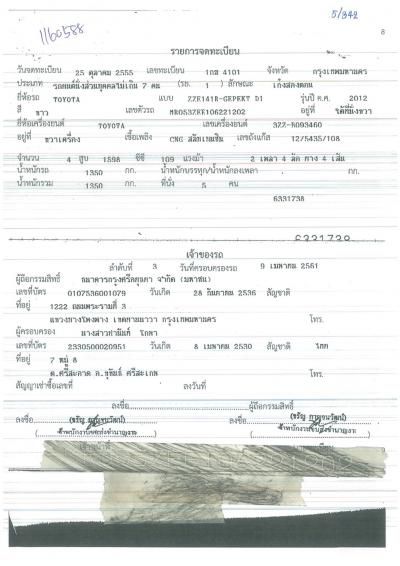 1160588
5/342
8
รายการจดทะเบียน
วันจดทะเบียน 25 ตุลาคม 2555 เลขทะเบียน 1กฮ 4101 จังหวัด กรุงเทพมหานคร
ประเภท รถยนต์นั่งส่วนบุคคลไม่เกิน 7 คน (รย. 1 ) ลักษณะ เก๋งสองตอน
ยี่ห้อรถ TOYOTA แบบ ZZE141R-GEPEKT D1 รุ่นปี ค.ศ. 2012
สี ขาว เลขตัวรถ MR053ZEE106221202 อยู่ที่
ยี่ห้อเครื่องยนต์ TOYOTA เลขเครื่องยนต์ 3ZZ-B093460
อยู่ที่ ขวาเครื่อง เชื้อเพลิง CNG สลับเบนซิน เลขถังแก๊ส 12/5435/108
จำนวน 4 สูบ 1598 ซีซี 109 แรงม้า 2 เพลา 4 ล้อ ยาง 4 เส้น
น้ำหนักรถ 1350 กก. น้ำหนักบรรทุก/น้ำหนักลงเพลา กก.
น้ำหนักรวม 1350 กก. ที่นั่ง 5 คน
6331738
6331738
เจ้าของรถ
ลำดับที่ 3 วันที่ครอบครองรถ 9 เมษายน 2561
ผู้ถือกรรมสิทธิ์ ธนาคารกรุงศรีอยุธยา จำกัด (มหาชน)
เลขที่บัตร 0107536001079 วันเกิด 28 กันยายน 2536 สัญชาติ
ที่อยู่ 1222 ถนนพระรามที่ 3
แขวงบางโพงพาง เขตยานนาวา กรุงเทพมหานคร โทร.
ผู้ครอบครอง
เลขที่บัตร 2330500020951 วันเกิด 8 เมษายน 2530 สัญชาติ ไทย
ที่อยู่ 7 หมู่ 8
ต.ศรีสะอาด อ.ขุขันธ์ ศรีสะเกษ โทร.
สัญญาเช่าซื้อเลขที่ ลงวันที่
ลงชื่อ ผู้ถือกรรมสิทธิ์
ลงชื่อ ลงชื่อ